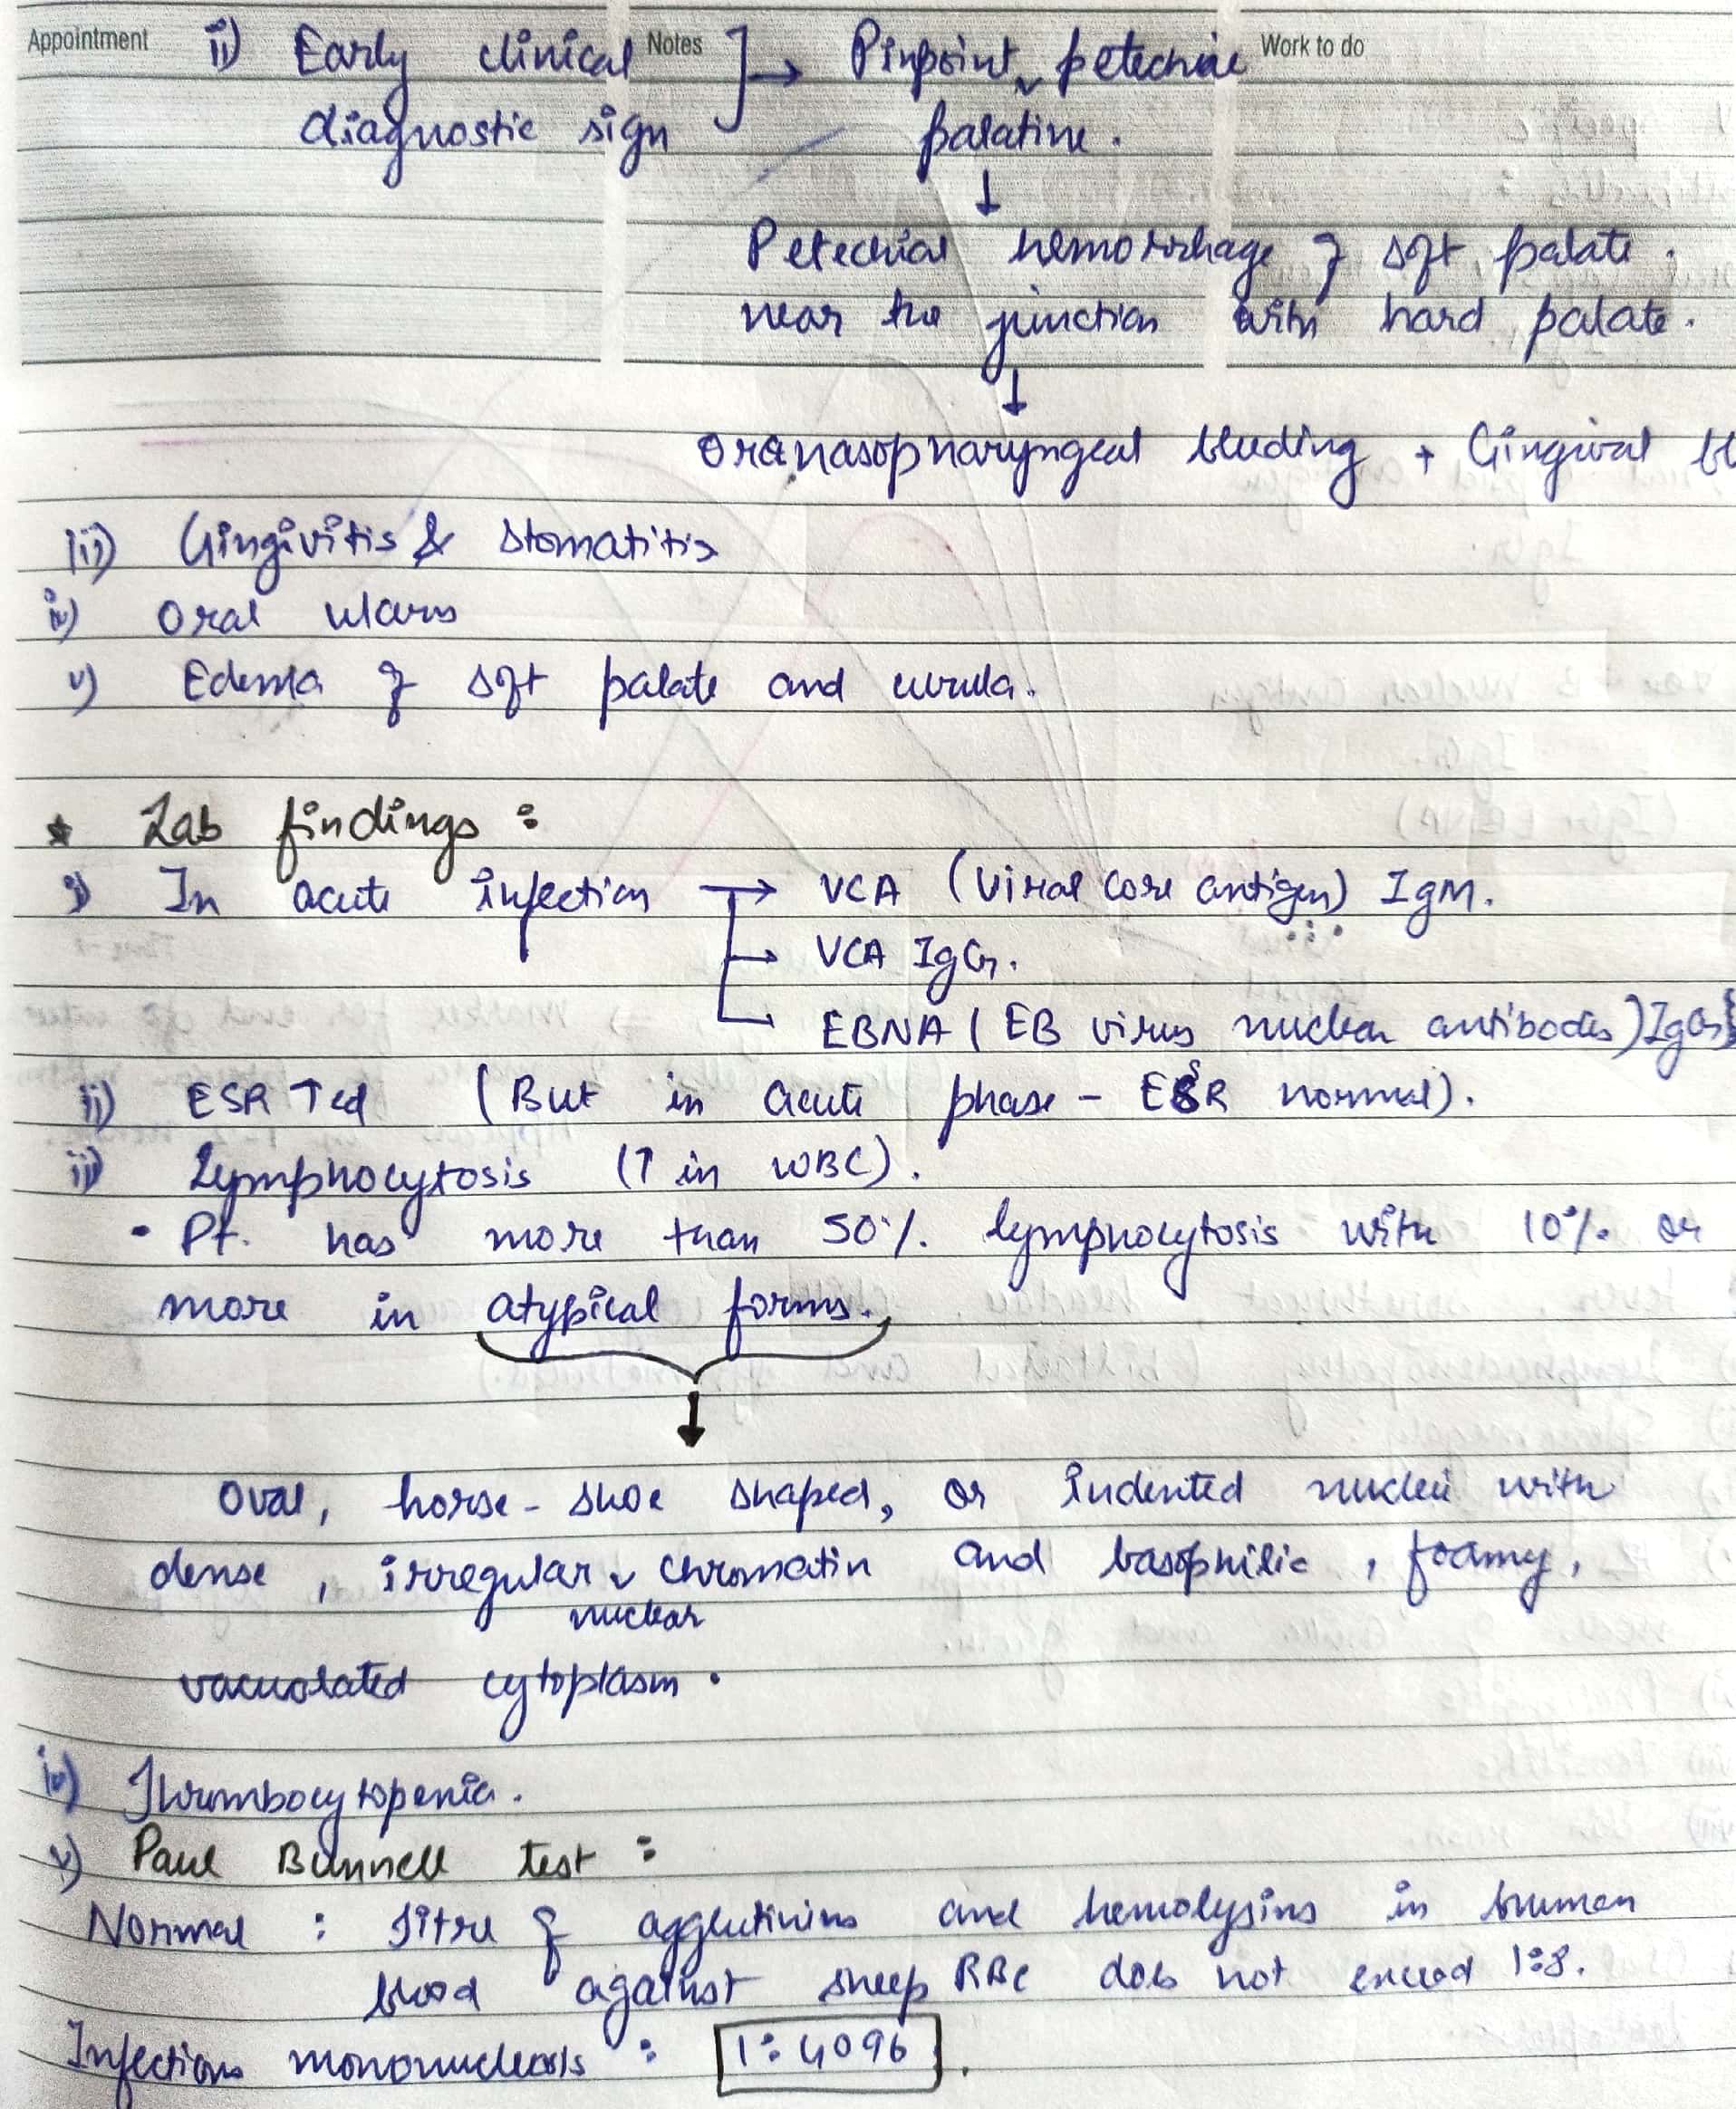 Appointment Notes Work to do
ii) Early clinical ] → Pinpoint petechiae
diagnostic sign palatine.
↓
Petechial hemorrhage of soft palate.
near the junction with hard palate.
↓
Oranasopharyngeal bleeding + Gingival bl
iii) Gingivitis & stomatitis
iv) Oral ulcers
v) Edema of soft palate and uvula.
* Lab findings :
i) In acute infection → VCA (Viral core antigen) IgM.
→ VCA IgG.
→ EBNA (EB virus nuclear antibodies) IgG
ii) ESR ↑ed (But in acute phase - ESR normal).
iii) Lymphocytosis (↑ in WBC).
• Pt. has more than 50%. lymphocytosis with 10%. or
more in atypical forms.
↓
Oval, horse-shoe shaped, or indented nucleii with
dense, irregular ˅ chromatin and basophilic, foamy,
nuclear
vacuolated cytoplasm.
iv) Thrombocytopenia.
v) Paul Bunnell test :
Normal : Titre of agglutinins and hemolysins in human
blood against sheep RBC does not exceed 1:8.
Infectious mononucleosis : 1:4096.